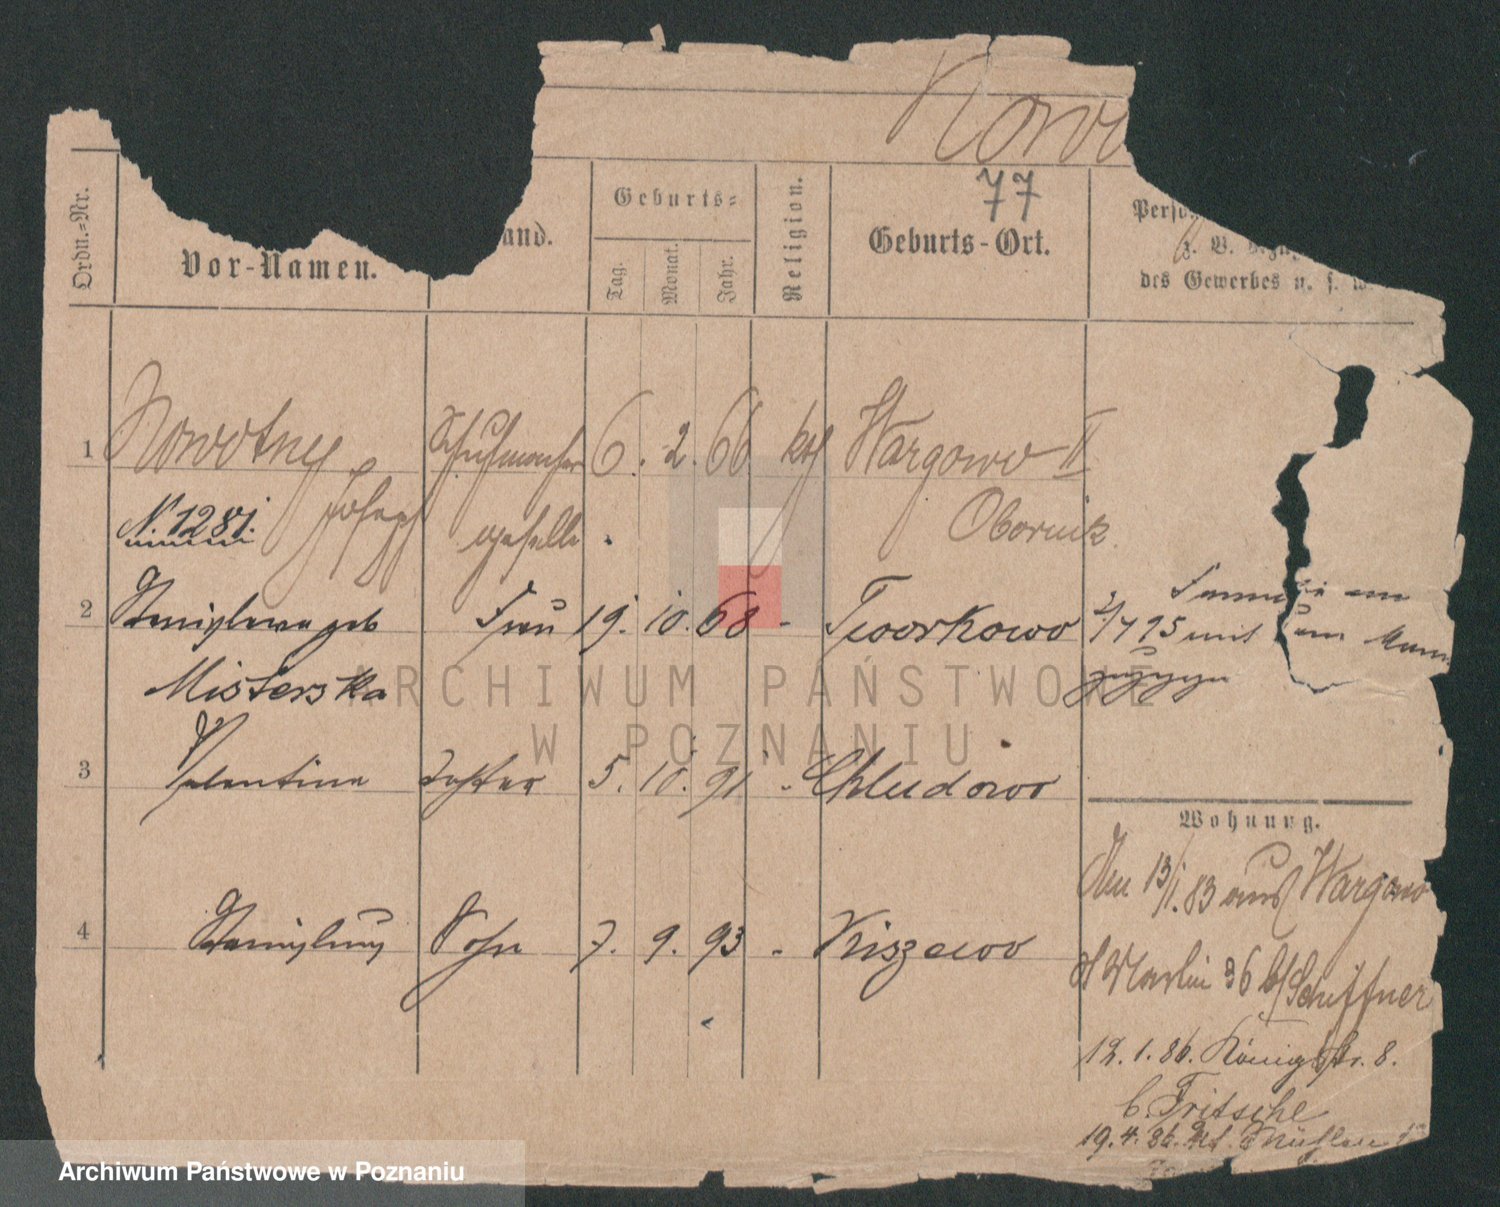 Now
77
Ordn.-Nr.
Vor-Namen.
and.
Geburts-
Tag.
Monat.
Jahr.
Religion.
Geburts-Ort.
Perso
z. B.
des Gewerbes u. s. w.
1 Nowotny Schuhmacher 6. 2. 66 kth Wargowo II
N. 1281. Joseph geselle Obornik
2 Stanislawa geb Frau 19. 10. 68 - Tworkowo
Misterska
Familie am
2/7 95 mit zum Mann
3 Valentine Tochter 5. 10. 91 - Chludowo
4 Stanislaus Sohn 7. 9. 93 - Kiszewo
Wohnung.
Am 13/1. 83 aus Wargowo
St Martin 36 b/Schiffner
12. 1. 86. Königstr. 8.
b. Fritsche
19. 4. 86. Mühlen
ARCHIWUM PAŃSTWOWE
W POZNANIU
Archiwum Państwowe w Poznaniu